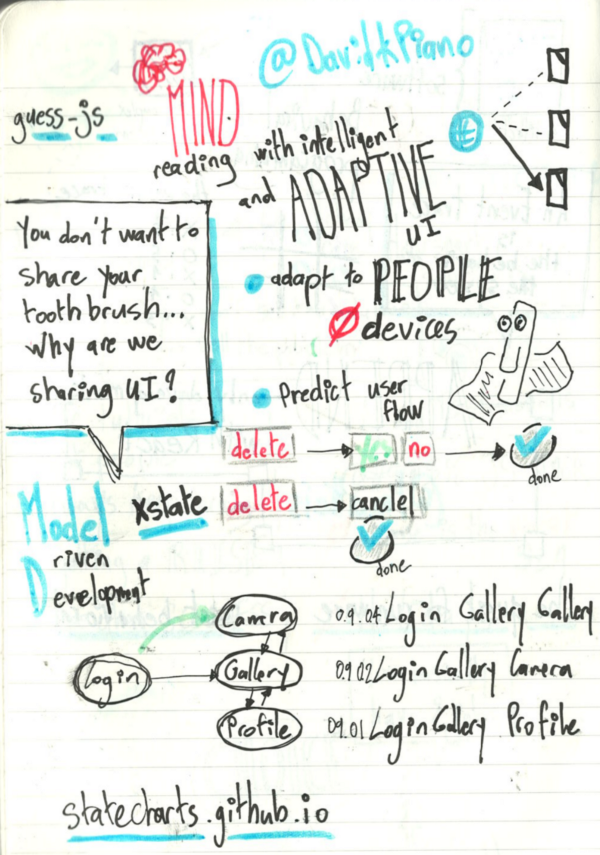 @DavidkPiano
guess-js
MIND
reading with intelligent
and ADAPTIVE
UI
You don't want to
share your
toothbrush...
why are we
sharing UI?
adapt to PEOPLE
devices
Predict user
flow
delete yes no
done
Model
Driven
Development
xstate delete canclel
done
Camera 09.04 Login Gallery Gallery
Login Gallery 0.9 02 Login Gallery Camera
Profile 09.01 Login Gallery Profile
statecharts.github.io